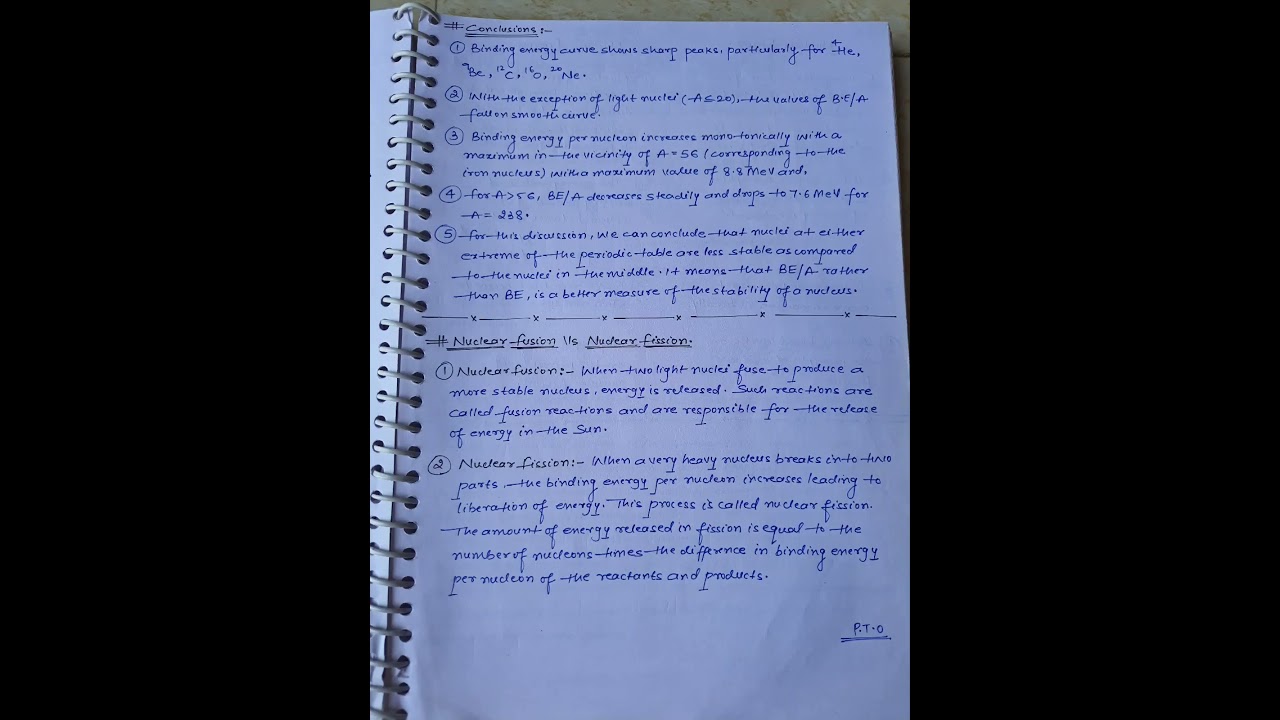 # Conclusions :-
① Binding energy curve shows sharp peaks, particularly for ⁴He,
⁹Be, ¹²C, ¹⁶O, ²⁰Ne.
② With the exception of light nuclei (A≤20), the values of B.E/A
fall on smooth curve.
③ Binding energy per nucleon increases monotonically with a
maximum in the vicinity of A=56 (corresponding to the
iron nucleus) with a maximum value of 8.8 MeV and,
④ for A>56, BE/A decreases steadily and drops to 7.6 MeV for
A = 238.
⑤ for this discussion, we can conclude that nuclei at either
extreme of the periodic table are less stable as compared
to the nuclei in the middle. It means that BE/A rather
than BE, is a better measure of the stability of a nucleus.
# Nuclear fusion Vs Nuclear fission.
① Nuclear fusion:- When two light nuclei fuse to produce a
more stable nucleus, energy is released. Such reactions are
called fusion reactions and are responsible for the release
of energy in the Sun.
② Nuclear fission:- When a very heavy nucleus breaks into two
parts, the binding energy per nucleon increases leading to
liberation of energy. This process is called nuclear fission.
The amount of energy released in fission is equal to the
number of nucleons times the difference in binding energy
per nucleon of the reactants and products.
P.T.O